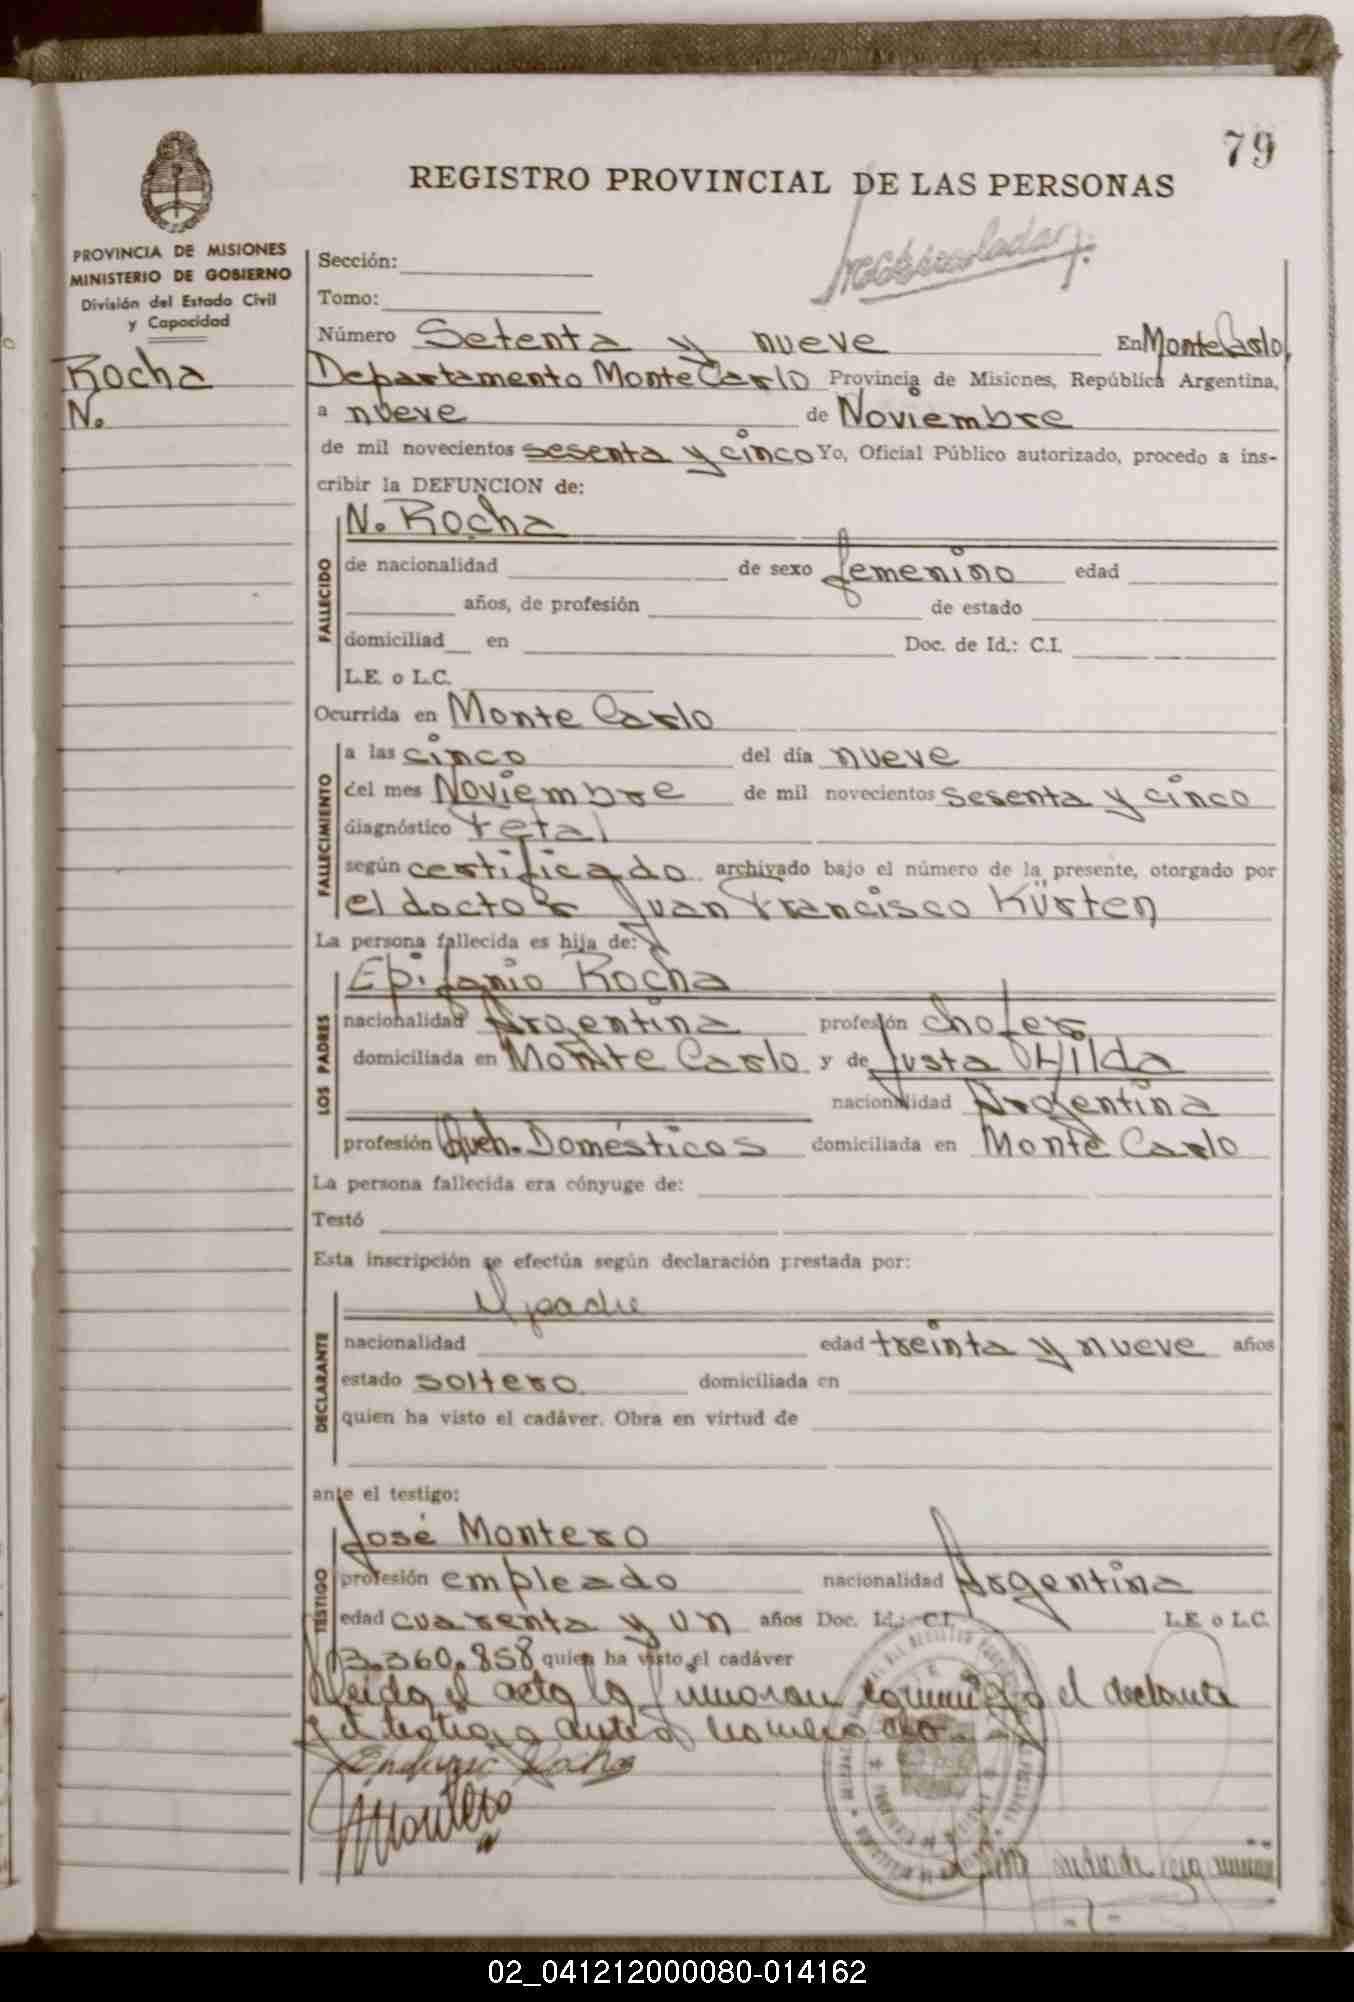 79
REGISTRO PROVINCIAL DE LAS PERSONAS
PROVINCIA DE MISIONES
MINISTERIO DE GOBIERNO
División del Estado Civil
y Capacidad
Rocha
N.
Sección:
Tomo:
Número Setenta y nueve En Monte Carlo,
Departamento Monte Carlo Provincia de Misiones, República Argentina,
a nueve de Noviembre
de mil novecientos sesenta y cinco Yo, Oficial Público autorizado, procedo a ins-
cribir la DEFUNCION de:
FALLECIDO
N. Rocha
de nacionalidad de sexo femenino edad
años, de profesión de estado
domiciliad en Doc. de Id.: C.I.
L.E. o L.C.
Ocurrida en Monte Carlo
FALLECIMIENTO
a las cinco del día nueve
del mes Noviembre de mil novecientos sesenta y cinco
diagnóstico fetal
según certificado archivado bajo el número de la presente, otorgado por
el doctor Juan Francisco Kürten
La persona fallecida es hija de:
LOS PADRES
Epifanio Rocha
nacionalidad Argentina profesión chofer
domiciliada en Monte Carlo y de Justa Hilda
nacionalidad Argentina
profesión Queh. Domésticos domiciliada en Monte Carlo
La persona fallecida era cónyuge de:
Testó
Esta inscripción se efectúa según declaración prestada por:
DECLARANTE
El padre
nacionalidad edad treinta y nueve años
estado soltero domiciliada en
quien ha visto el cadáver. Obra en virtud de
ante el testigo:
TESTIGO
José Montero
profesión empleado nacionalidad Argentina
edad cuarenta y un años Doc. Id.: C.I. L.E. o L.C.
3.360.858 quien ha visto el cadáver
Leida el acta la firmaron conmigo el declarante
y el testigo antes nombrado.
Rocha
Montero
02_041212000080-014162